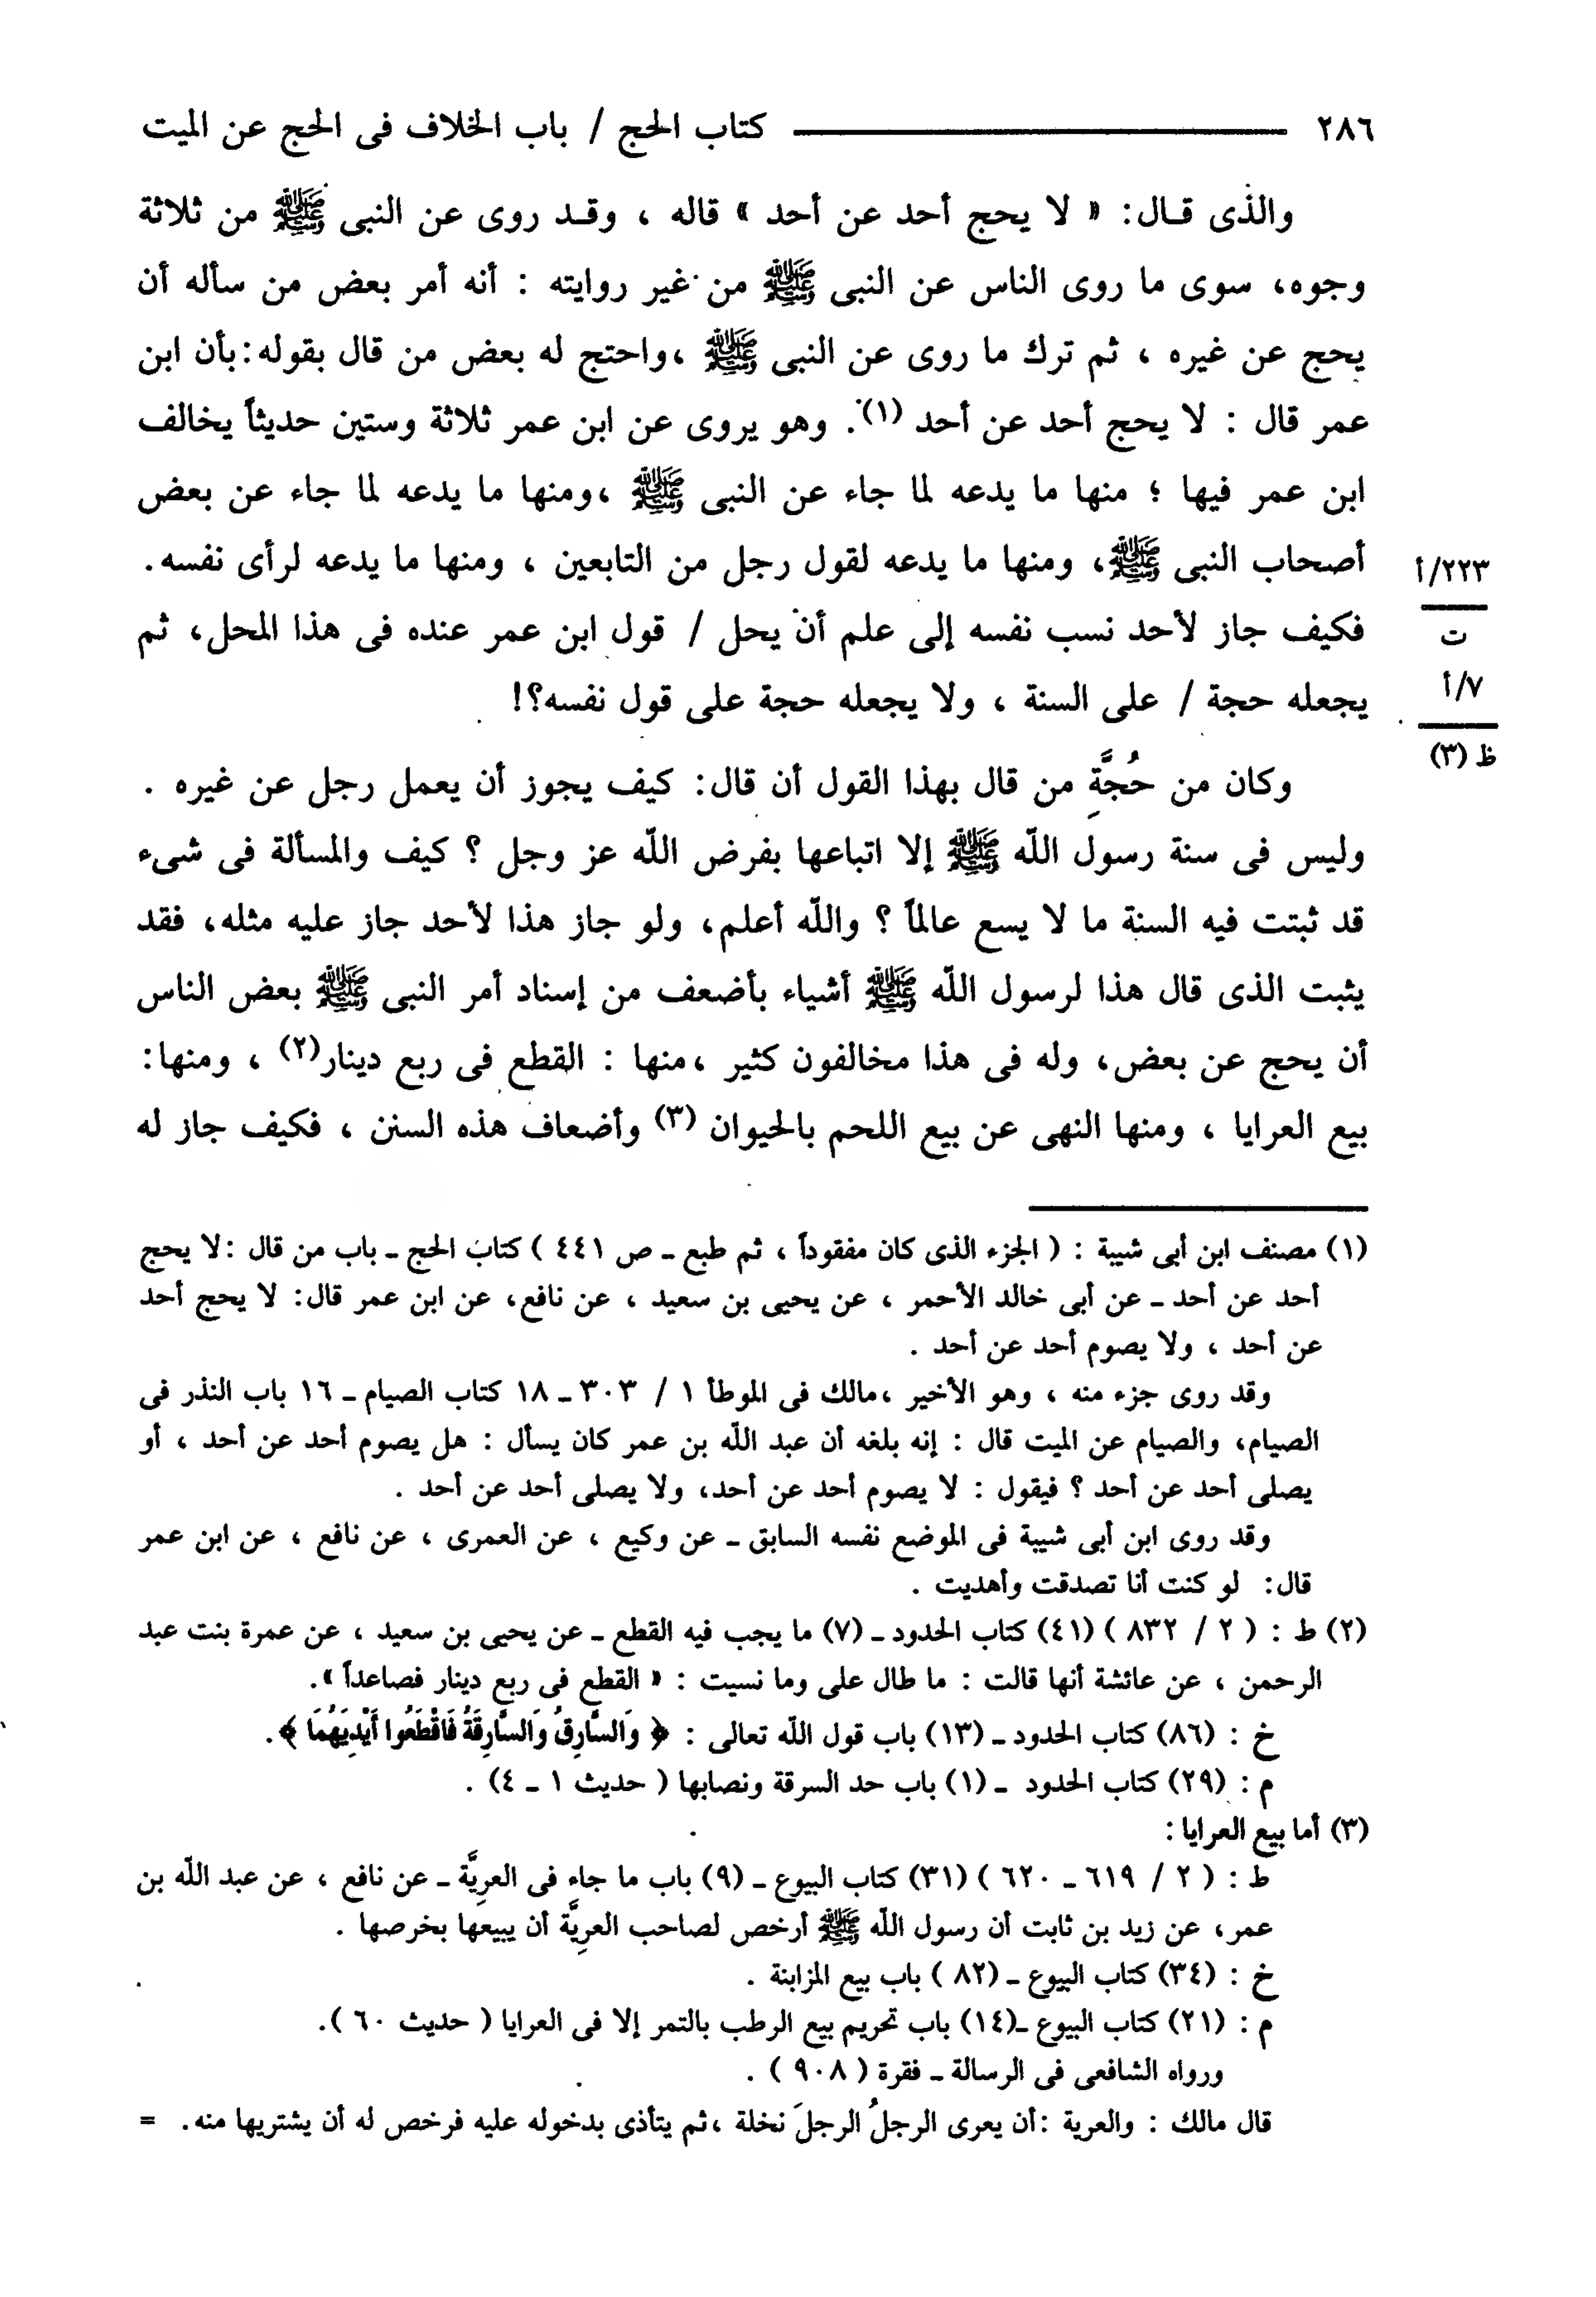 ٢٨٦ ــــــــــ كتاب الحج / باب الخلاف فى الحج عن الميت
والذى قـال: « لا يحج أحد عن أحد » قاله ، وقـد روى عن النبى ﷺ من ثلاثة
وجوه، سوى ما روى الناس عن النبى ﷺ من غير روايته : أنه أمر بعض من سأله أن
يحج عن غيره ، ثم ترك ما روى عن النبى ﷺ ،واحتج له بعض من قال بقوله:بأن ابن
عمر قال : لا يحج أحد عن أحد (١). وهو يروى عن ابن عمر ثلاثة وستين حديثاً يخالف
ابن عمر فيها ؛ منها ما يدعه لما جاء عن النبى ﷺ ،ومنها ما يدعه لما جاء عن بعض
أصحاب النبى ﷺ، ومنها ما يدعه لقول رجل من التابعين ، ومنها ما يدعه لرأى نفسه.
٢٢٣/أ
فكيف جاز لأحد نسب نفسه إلى علم أن يحل / قول ابن عمر عنده فى هذا المحل، ثم
ت
يجعله حجة / على السنة ، ولا يجعله حجة على قول نفسه؟!
٧/أ
ظ (٣)
وكان من حُجَّةِ من قال بهذا القول أن قال: كيف يجوز أن يعمل رجل عن غيره .
وليس فى سنة رسول اللّه ﷺ إلا اتباعها بفرض اللّه عز وجل ؟ كيف والمسألة فى شىء
قد ثبتت فيه السنة ما لا يسع عالماً ؟ واللّه أعلم، ولو جاز هذا لأحد جاز عليه مثله، فقد
يثبت الذى قال هذا لرسول اللّه ﷺ أشياء بأضعف من إسناد أمر النبى ﷺ بعض الناس
أن يحج عن بعض، وله فى هذا مخالفون كثير ،منها : القطع فى ربع دينار(٢) ، ومنها:
بيع العرايا ، ومنها النهى عن بيع اللحم بالحيوان (٣) وأضعاف هذه السنن ، فكيف جاز له
(١) مصنف ابن أبى شيبة : ( الجزء الذى كان مفقوداً ، ثم طبع ـ ص ٤٤١ ) كتاب الحج ـ باب من قال :لا يحج
أحد عن أحد ـ عن أبى خالد الأحمر ، عن يحيى بن سعيد ، عن نافع، عن ابن عمر قال: لا يحج أحد
عن أحد ، ولا يصوم أحد عن أحد .
وقد روى جزء منه ، وهو الأخير ،مالك فى الموطأ ١ / ٣٠٣ ـ ١٨ كتاب الصيام ـ ١٦ باب النذر فى
الصيام، والصيام عن الميت قال : إنه بلغه أن عبد اللّه بن عمر كان يسأل : هل يصوم أحد عن أحد ، أو
يصلى أحد عن أحد ؟ فيقول : لا يصوم أحد عن أحد، ولا يصلى أحد عن أحد .
وقد روى ابن أبى شيبة فى الموضع نفسه السابق ـ عن وكيع ، عن العمرى ، عن نافع ، عن ابن عمر
قال: لو كنت أنا تصدقت وأهديت .
(٢) ط : ( ٢ / ٨٣٢ ) (٤١) كتاب الحدود ـ (٧) ما يجب فيه القطع ـ عن يحيى بن سعيد ، عن عمرة بنت عبد
الرحمن ، عن عائشة أنها قالت : ما طال على وما نسيت : « القطع فى ربع دينار فصاعداً ».
خ : (٨٦) كتاب الحدود ـ (١٣) باب قول اللّه تعالى : ﴿ وَالسَّارِقُ وَالسَّارِقَةُ فَاقْطَعُوا أَيْدِيَهُمَا ﴾.
م : (٢٩) كتاب الحدود ـ (١) باب حد السرقة ونصابها ( حديث ١ ـ ٤) .
(٣) أما بيع العرايا :
ط : ( ٢ / ٦١٩ ـ ٦٢٠ ) (٣١) كتاب البيوع ـ (٩) باب ما جاء فى العريَّة ـ عن نافع ، عن عبد اللّه بن
عمر، عن زيد بن ثابت أن رسول اللّه ﷺ أرخص لصاحب العريَّة أن يبيعها بخرصها .
خ : (٣٤) كتاب البيوع ـ (٨٢ ) باب بيع المزابنة .
م : (٢١) كتاب البيوع ـ(١٤) باب تحريم بيع الرطب بالتمر إلا فى العرايا ( حديث ٦٠ ).
ورواه الشافعى فى الرسالة ـ فقرة ( ٩٠٨ ) .
قال مالك : والعرية :أن يعرى الرجلُ الرجلَ نخلة ،ثم يتأذى بدخوله عليه فرخص له أن يشتريها منه. =